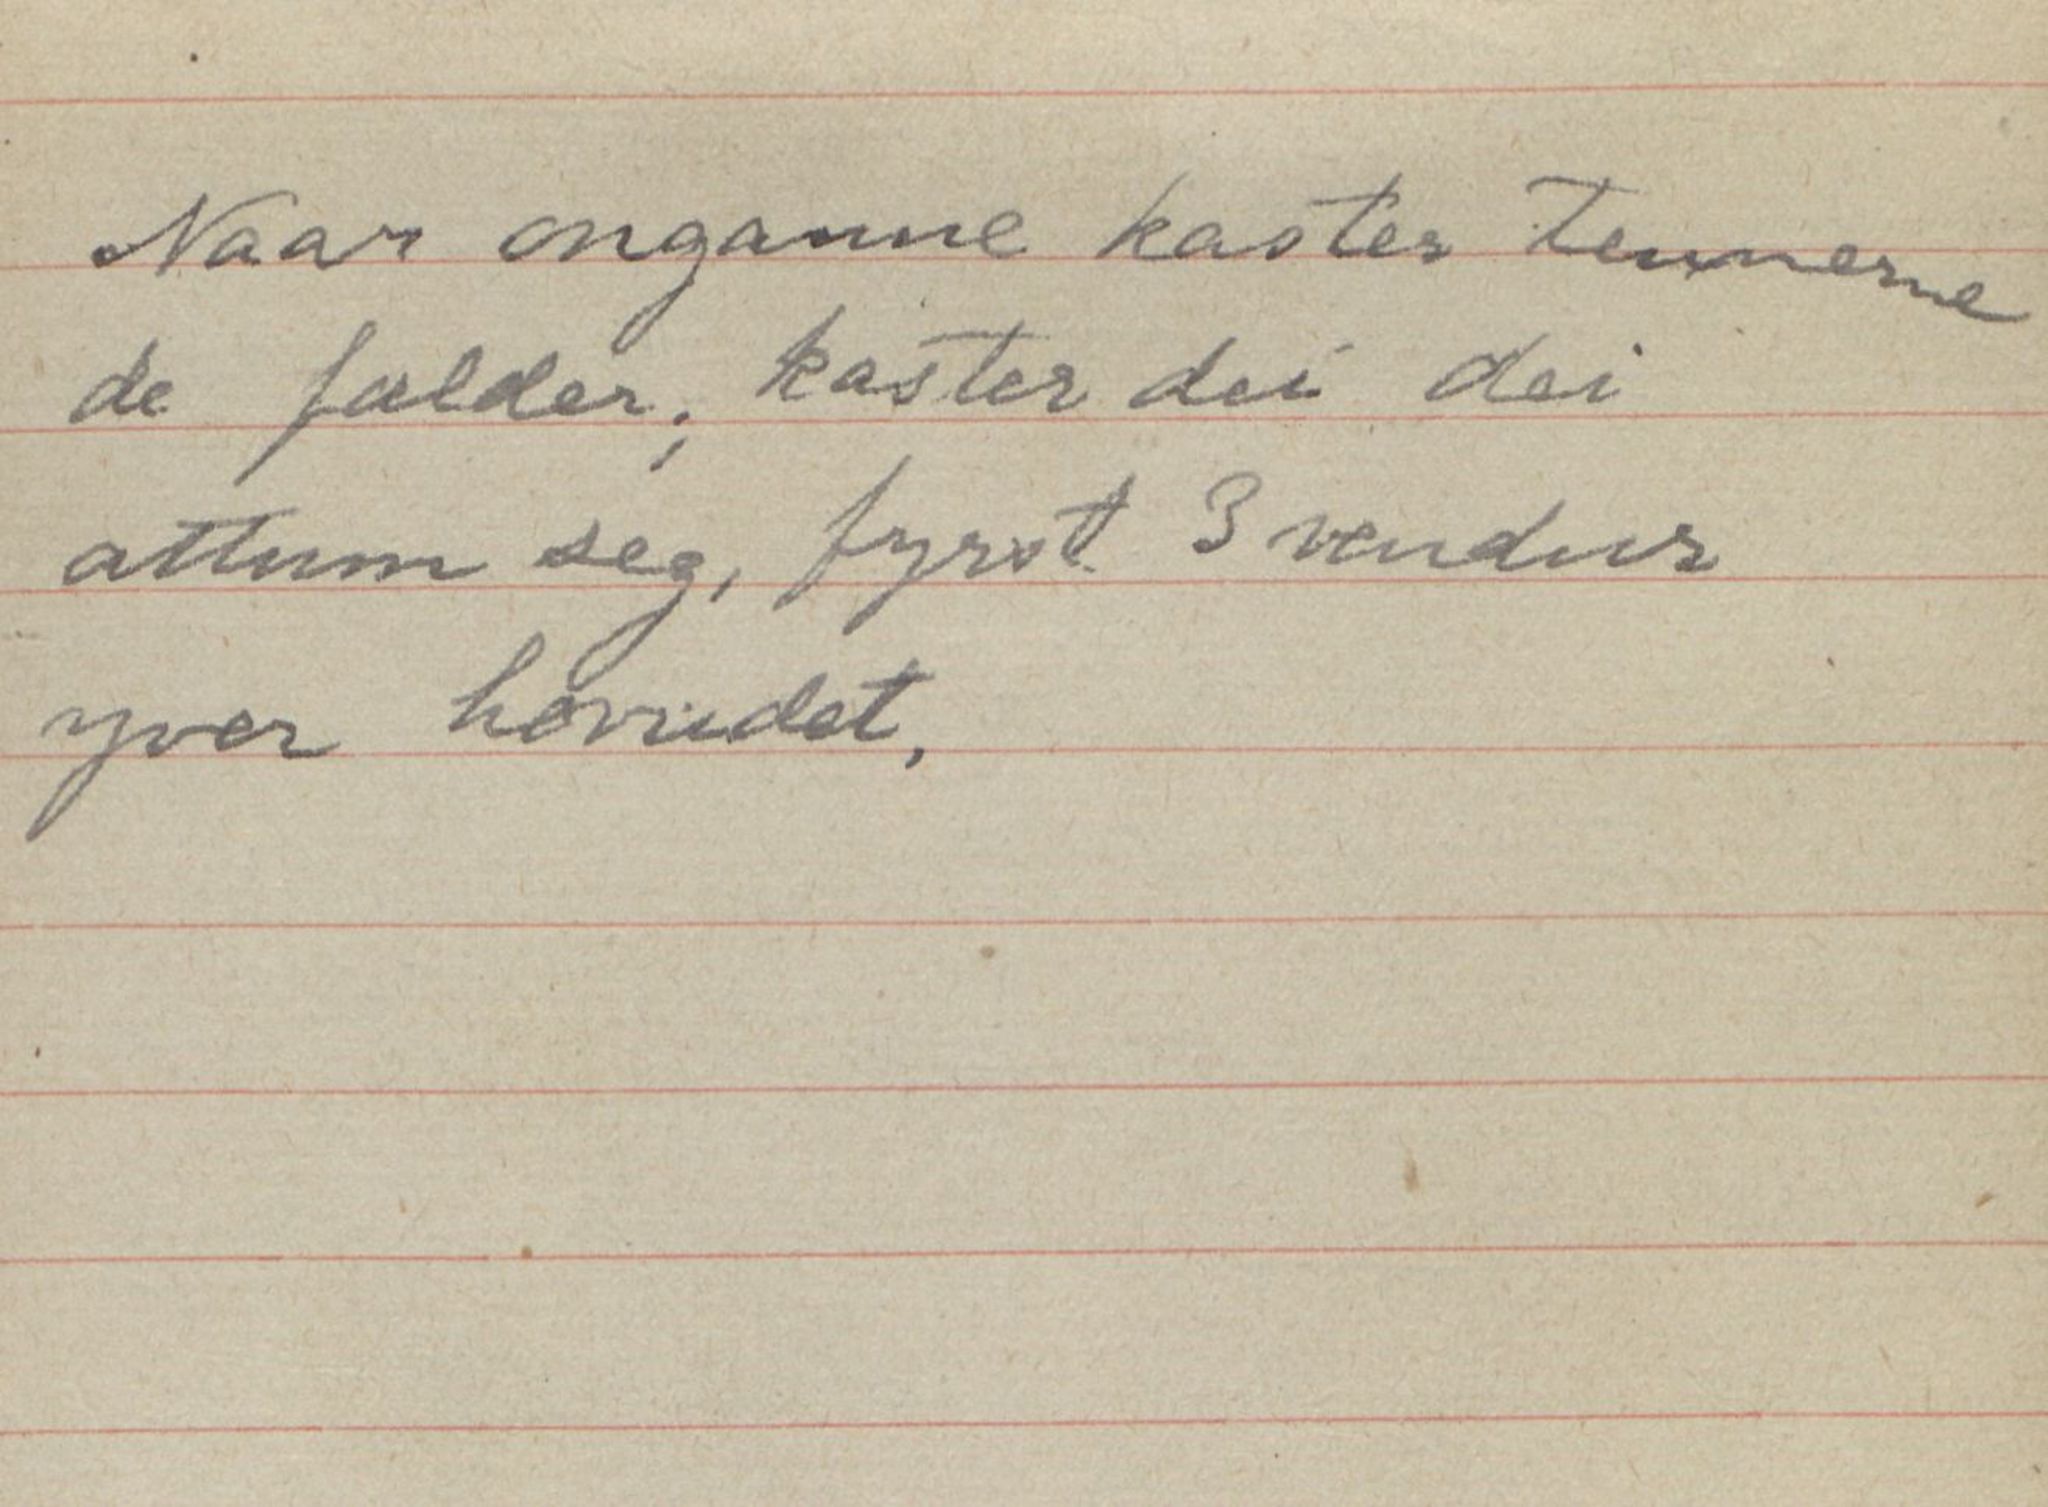 Naar onganne kaster tennerne
de fælder, kaster dei dei
attum seg, fyrst 3 vendur
yver hovudet,